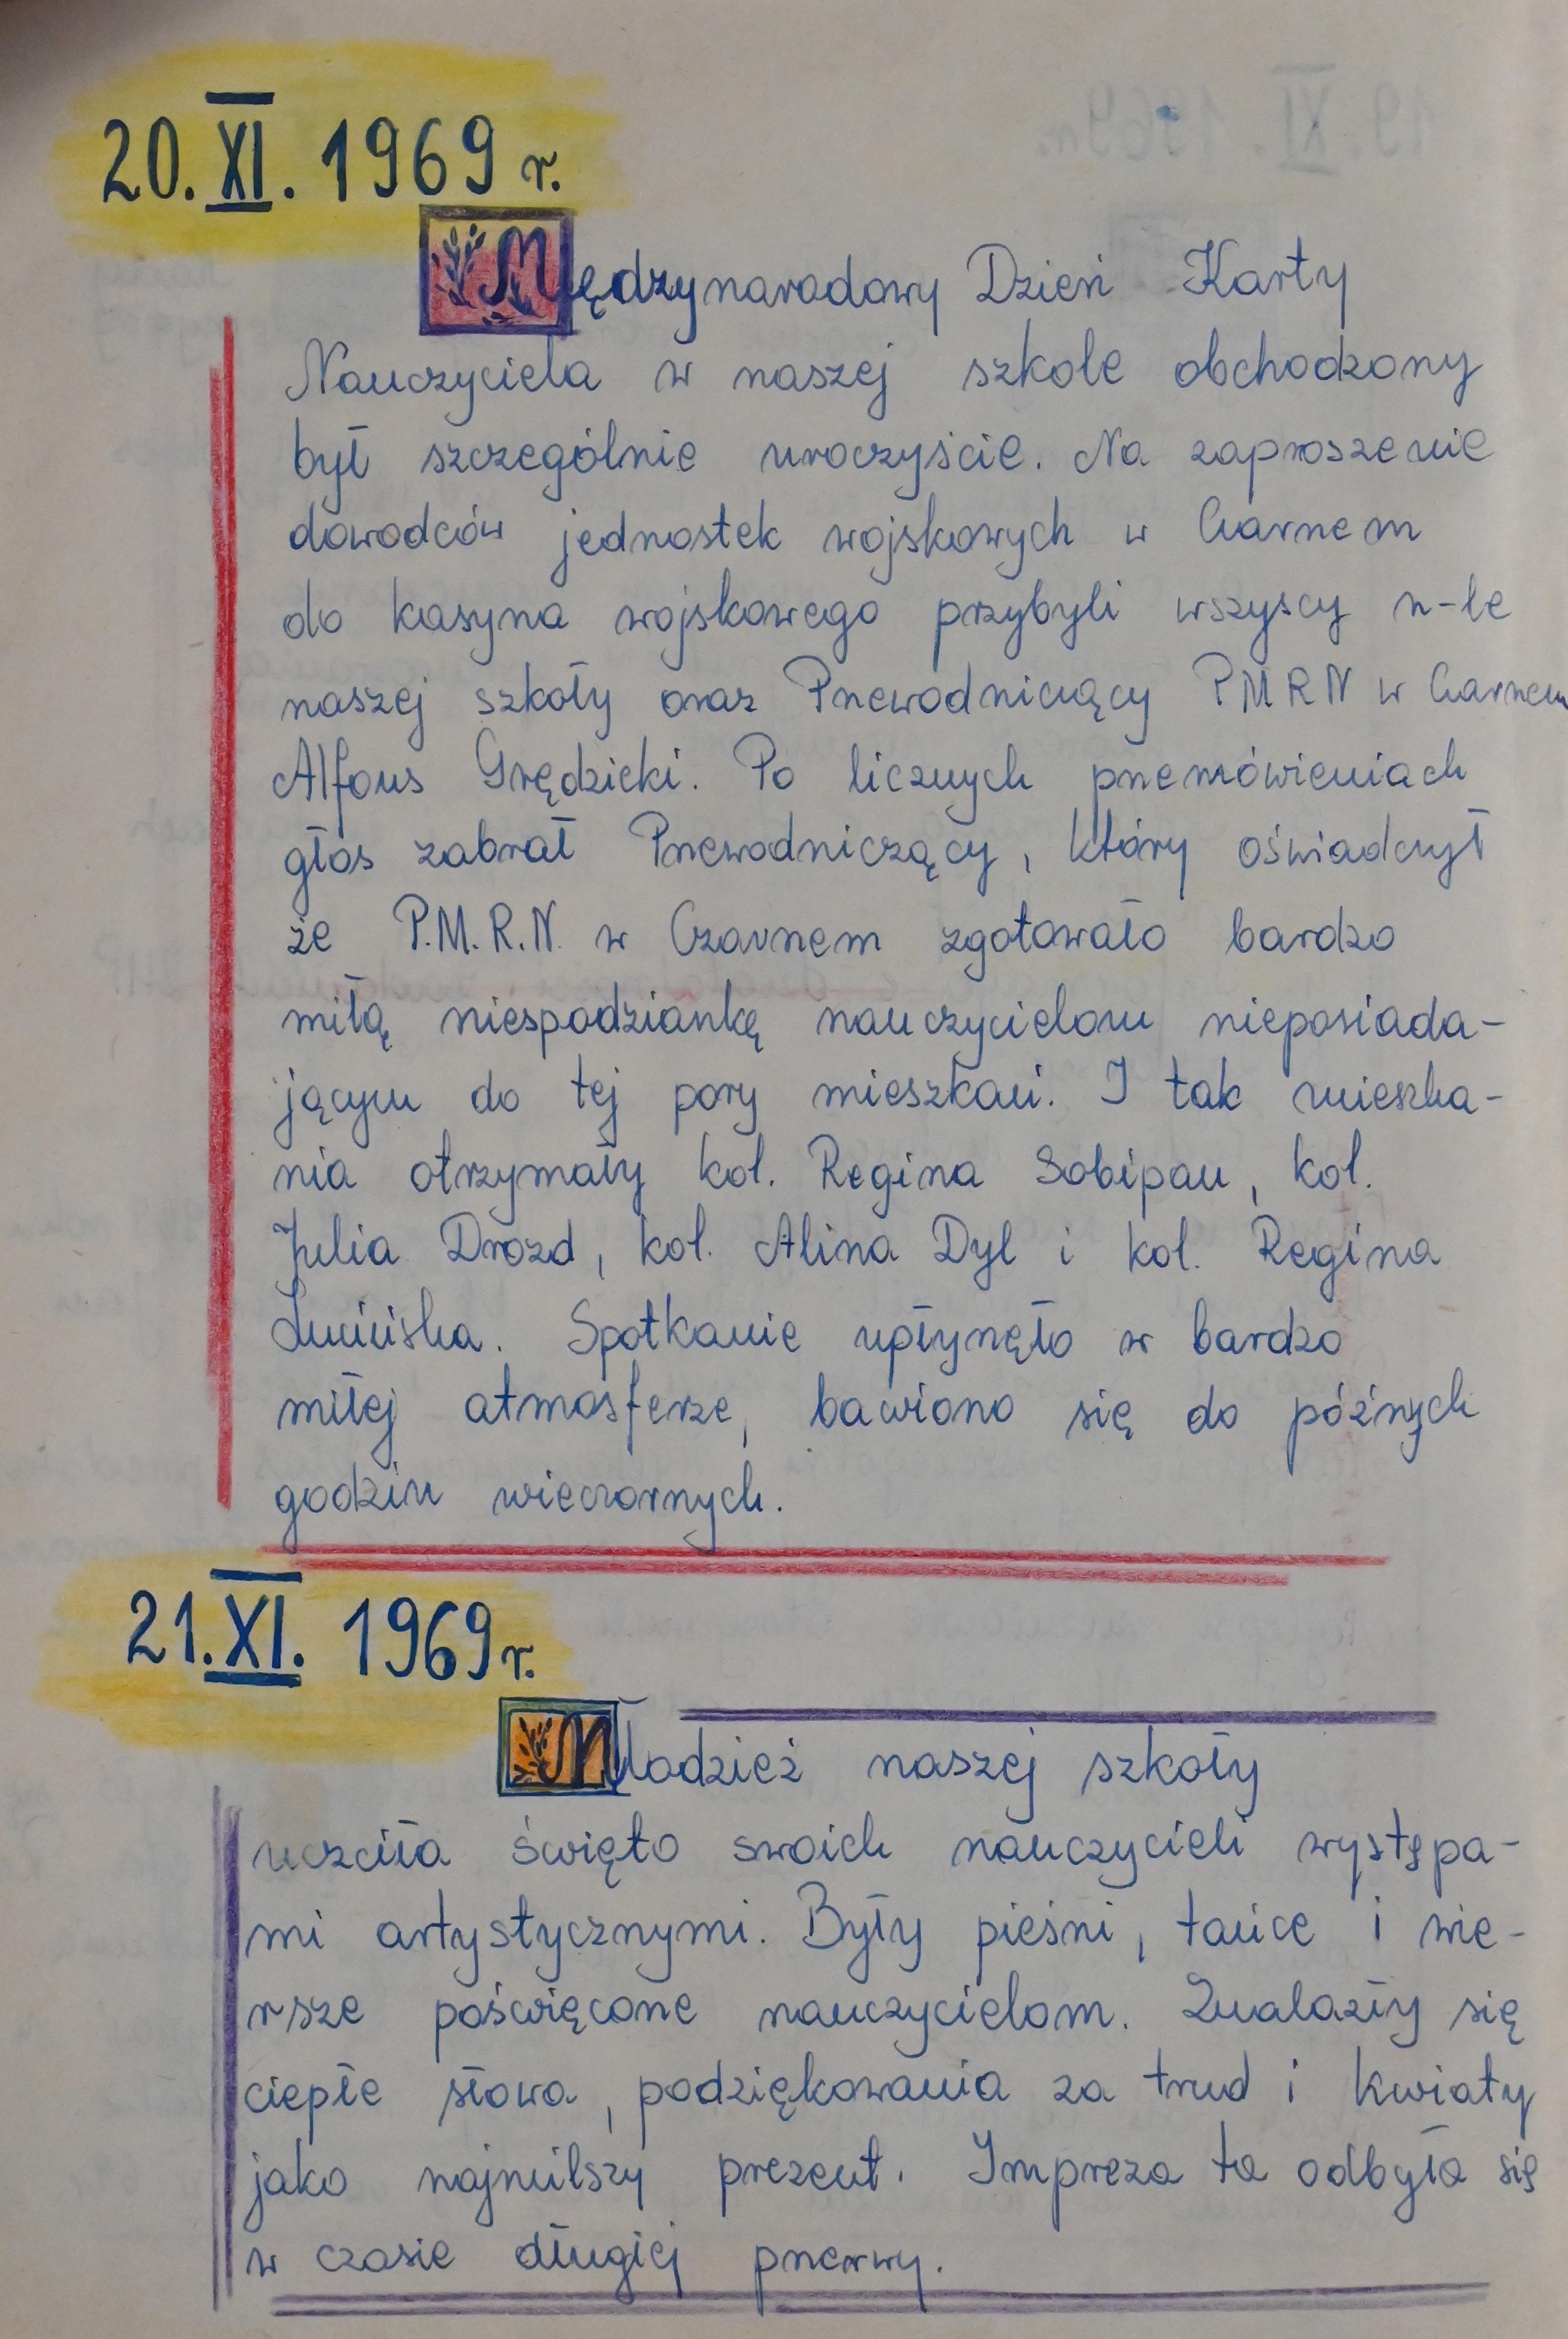 20. XI. 1969 r.
Międzynarodowy Dzień Karty
Nauczyciela w naszej szkole obchodzony
był szczególnie uroczyście. Na zaproszenie
dowodców jednostek wojskowych w Czarnem
do kasyna wojskowego przybyli wszyscy n-le
naszej szkoły oraz Przewodniczący PMRN w Czarnem
Alfons Grędzicki. Po licznych przemówieniach
głos zabrał Przewodniczący, który oświadczył
że P.M.R.N. w Czarnem zgotowało bardzo
miłą niespodziankę nauczycielom nieposiada-
jącym do tej pory mieszkań. I tak mieszka-
nia otrzymały kol. Regina Sobipan, kol.
Julia Drozd, kol. Alina Dyl i kol. Regina
Spotkanie upłynęło w bardzo
miłej atmosferze, bawiono się do późnych
godzin wieczornych.
21. XI. 1969 r.
Młodzież naszej szkoły
uczciła święto swoich nauczycieli występa-
mi artystycznymi. Były pieśni, tańce i wie-
rsze poświęcone nauczycielom. Znalazły się
ciepłe słowa, podziękowania za trud i kwiaty
jako najmilszy prezent. Impreza ta odbyła się
w czasie długiej przerwy.